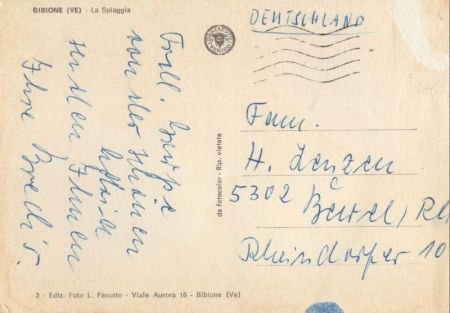 BIBIONE (VE) - La Spiaggia
Frdl. Grüße
von der
senden Ihnen
Ihre
3 - Ediz. Foto L. Fanotto - Viale Aurora 16 - Bibione (Ve)
da fotocolor - Rip. vietata
DEUTSCHLAND
Fam.
H. Lenzen
5302 Beuel/Rh
Rheindorfer 10